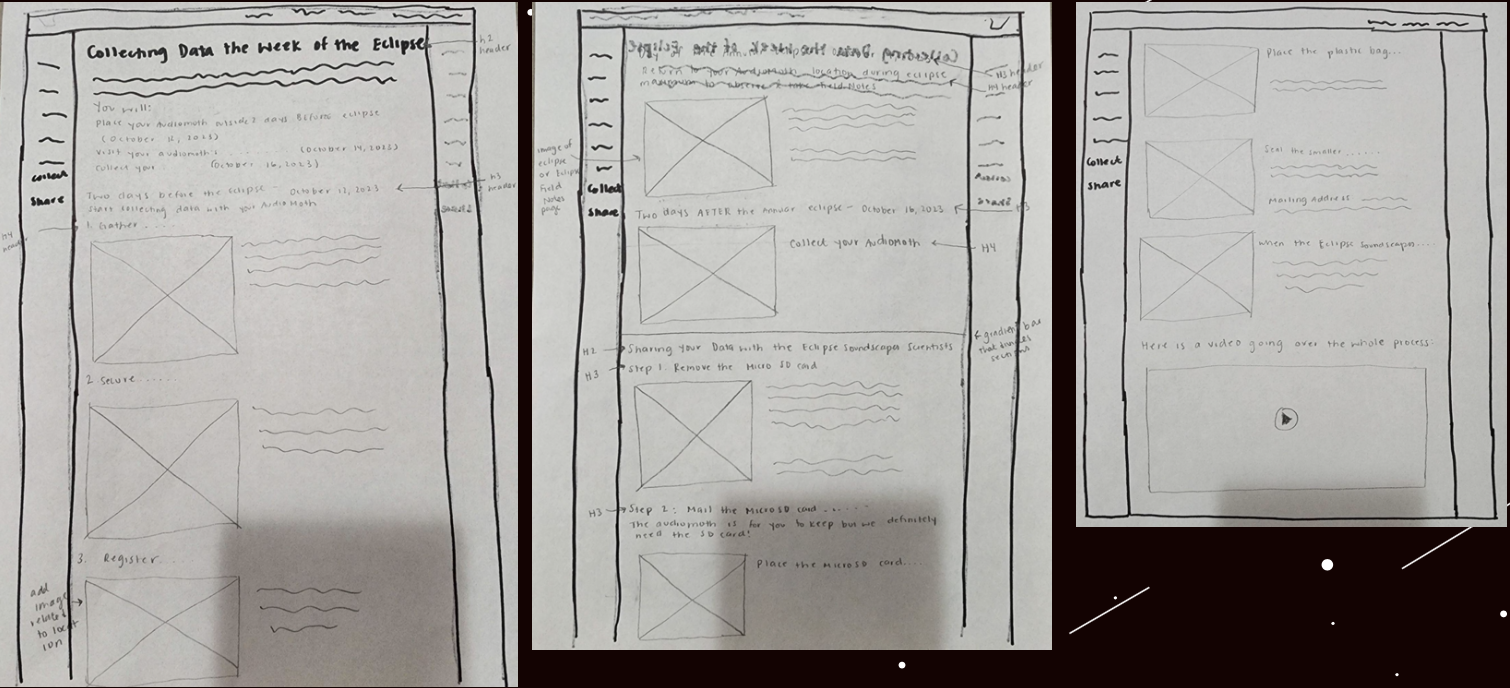 Collecting Data the Week of the Eclipse
h2
header
You will:
Place your Audiomoth outside 2 days before eclipse
Visit your audiomoth (October 14, 2023)
Collect your (October 16, 2023)
Collect
Share
Two days before the eclipse - October 12, 2023
H3
header
Start collecting data with your AudioMoth
1. Gather ......
H4
header
2. Secure......
3. Register.....
add
image
related
to locat
ion
Return to your AudioMoth location during eclipse
maximum to observe & take field Notes
H3 header
H4 header
image of
eclipse
or Eclipse
Field
Notes
page
Collect
Share
Two days AFTER the annular eclipse - October 16, 2023
H3
Collect your AudioMoth
H4
gradient bar
that
sections
H2
Sharing Your Data with the Eclipse Soundscapes Scientists
H3
Step 1. Remove the Micro SD card
H3
Step 2: Mail the MicroSD card ......
The audiomoth is for you to keep but we definitely
need the SD card!
Place the MicroSD card....
Place the plastic bag...
Seal the smaller ......
Collect
Share
Mailing Address
When the Eclipse Soundscapes....
Here is a video going over the whole process: